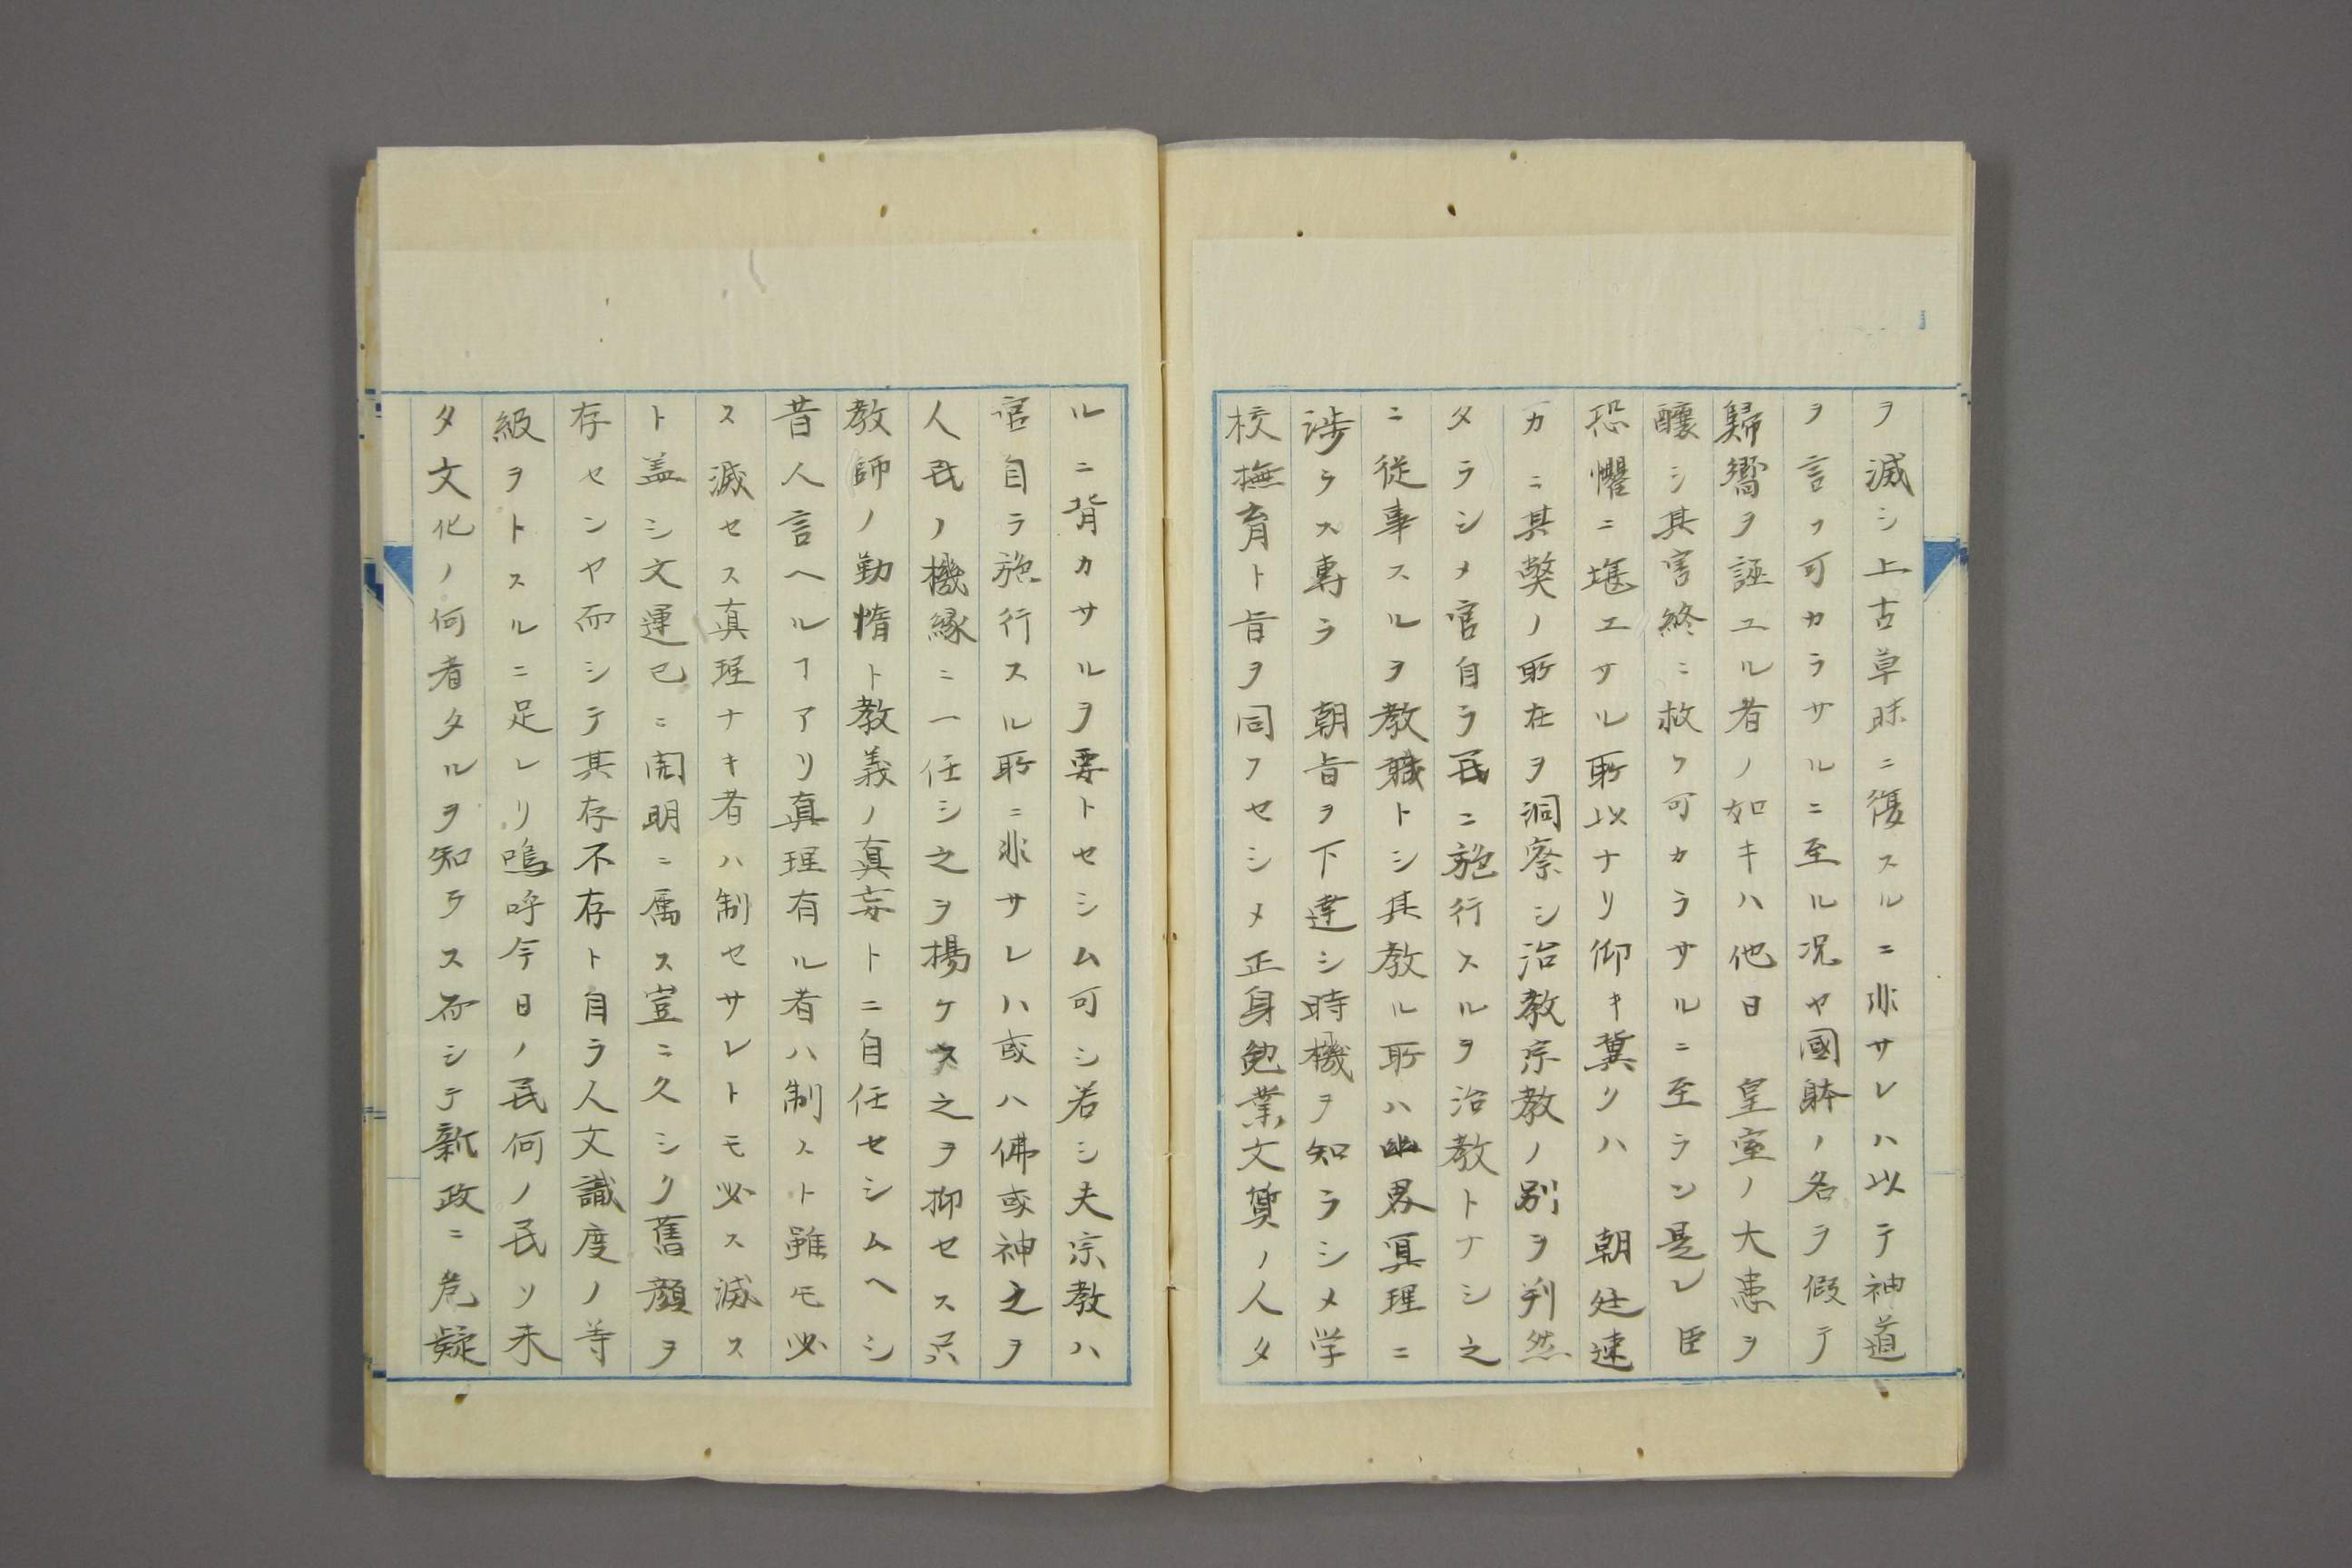 ヲ滅シ上古草昧ニ復スルニ非サレハ以テ神道
ヲ言フ可カラサルニ至ル况ヤ國躰ノ名ヲ假テ
歸嚮ヲ誣ユル者ノ如キハ他日　皇室ノ大患ヲ
釀シ其害終ニ救フ可カラサルニ至ラン是レ臣
恐懼ニ堪エサル所以ナリ仰キ冀クハ　朝廷速
カニ其弊ノ所在ヲ洞察シ治教宗教ノ別ヲ判然
タラシメ官自ラ民ニ施行スルヲ治教トナシ之
ニ従事スルヲ教職トシ其教ル所ハ幽界冥理ニ
渉ラス専ラ　朝旨ヲ下達シ時機ヲ知ラシメ学
校撫育ト旨ヲ同フセシメ正身勉業文質ノ人タ
ルニ背カサルヲ要トセシム可シ若シ夫宗教ハ
官自ラ施行スル所ニ非サレハ或ハ佛或神之ヲ
人民ノ機縁ニ一任シ之ヲ揚ケス之ヲ抑セス只
教師ノ勤惰ト教義ノ真妄トニ自任セシムヘシ
昔人言ヘルヿアリ真理有ル者ハ制スト雖モ必
ス滅セス真理ナキ者ハ制セサレトモ必ス滅ス
ト盖シ文運已ニ開明ニ属ス豈ニ久シク舊顔ヲ
存センヤ而シテ其存不存ト自ラ人文識度ノ等
級ヲトスルニ足レリ嗚呼今日ノ民何ノ民ソ未
タ文化ノ何者タルヲ知ラス而シテ新政ニ危疑